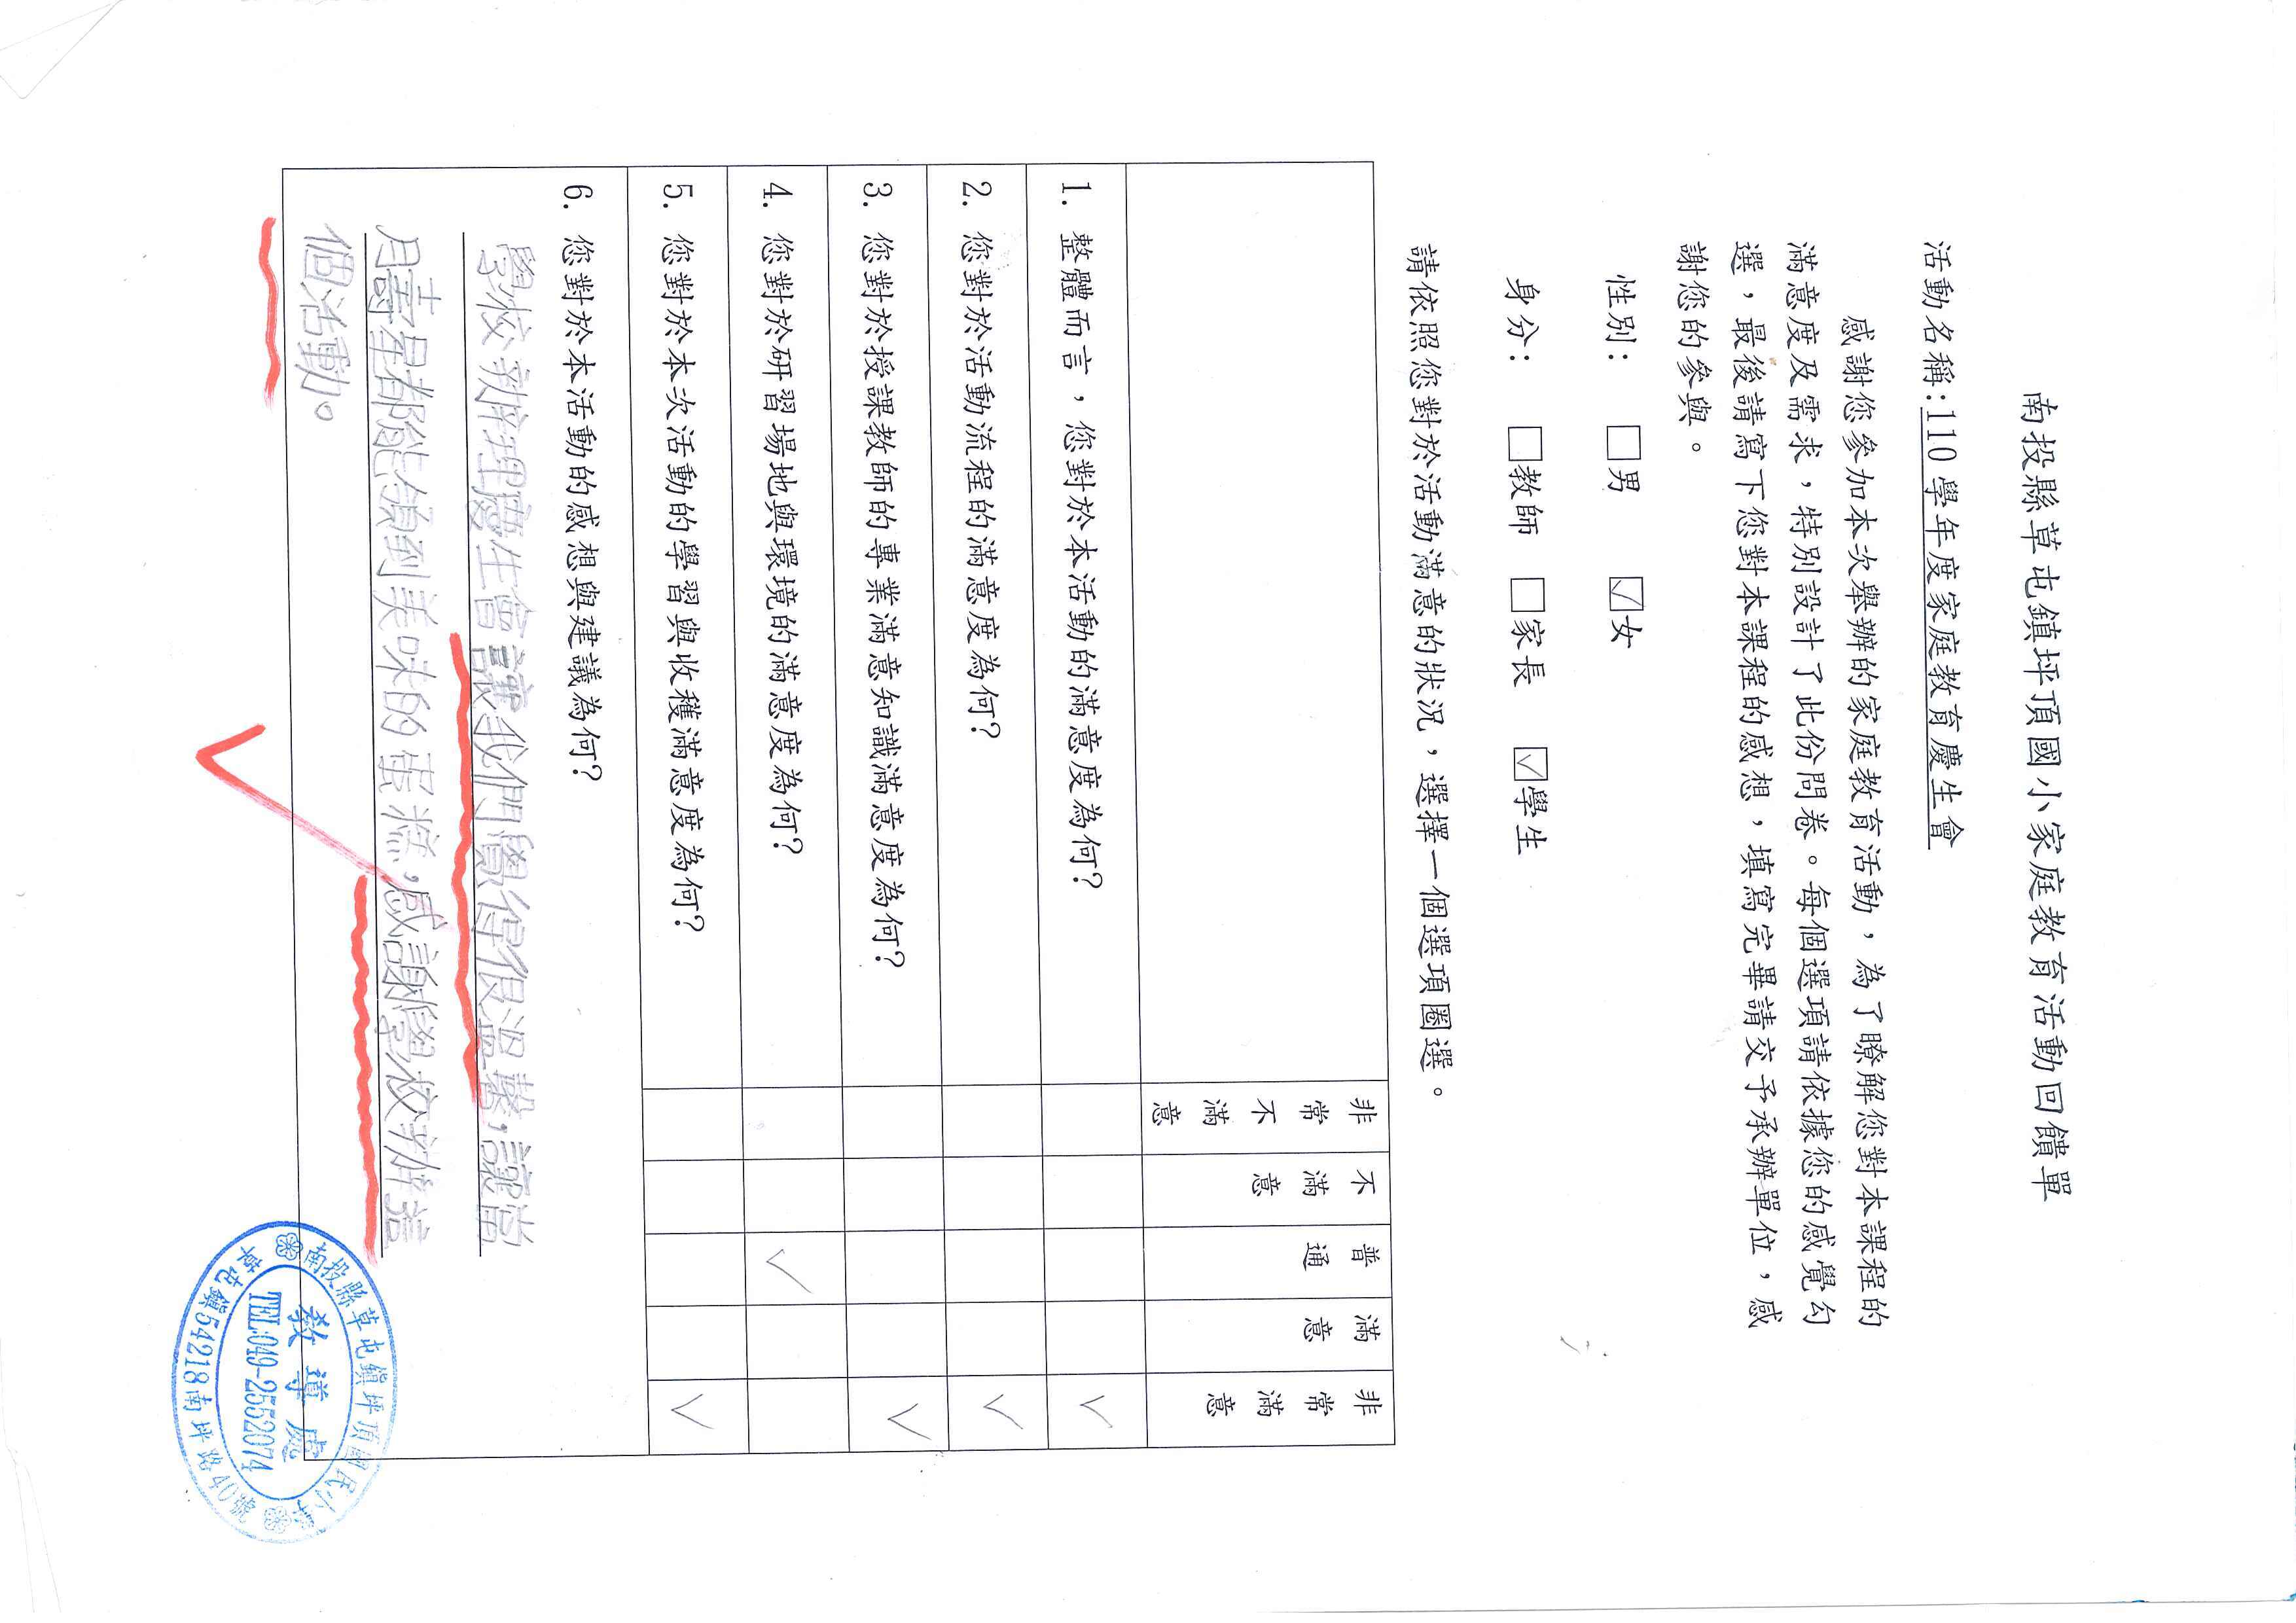 南投縣草屯鎮坪頂國小家庭教育活動回饋單
活動名稱:110學年度家庭教育慶生會
感謝您參加本次舉辦的家庭教育活動，為了瞭解您對本課程的
滿意度及需求，特別設計了此份問卷。每個選項請依據您的感覺勾
選，最後請寫下您對本課程的感想，填寫完畢請交予承辦單位，感
謝您的參與。
性別： □男 ☑女
身分： □教師 □家長 ☑學生
請依照您對於活動滿意的狀況，選擇一個選項圈選。
非常不滿意 不滿意 普通 滿意 非常滿意
1. 整體而言，您對於本活動的滿意度為何? ✓
2. 您對於活動流程的滿意度為何? ✓
3. 您對於授課教師的專業滿意知識滿意度為何? ✓
4. 您對於研習場地與環境的滿意度為何? ✓
5. 您對於本次活動的學習與收穫滿意度為何? ✓
6. 您對於本活動的感想與建議為何?
學校辦理慶生會讓我們覺得很溫馨，讓當
月壽星都能領到美味的蛋糕，感謝學校辦這
個活動。
南投縣草屯鎮坪頂國民小學
教導處
TEL:049-2552074
草屯鎮54218南坪路40號